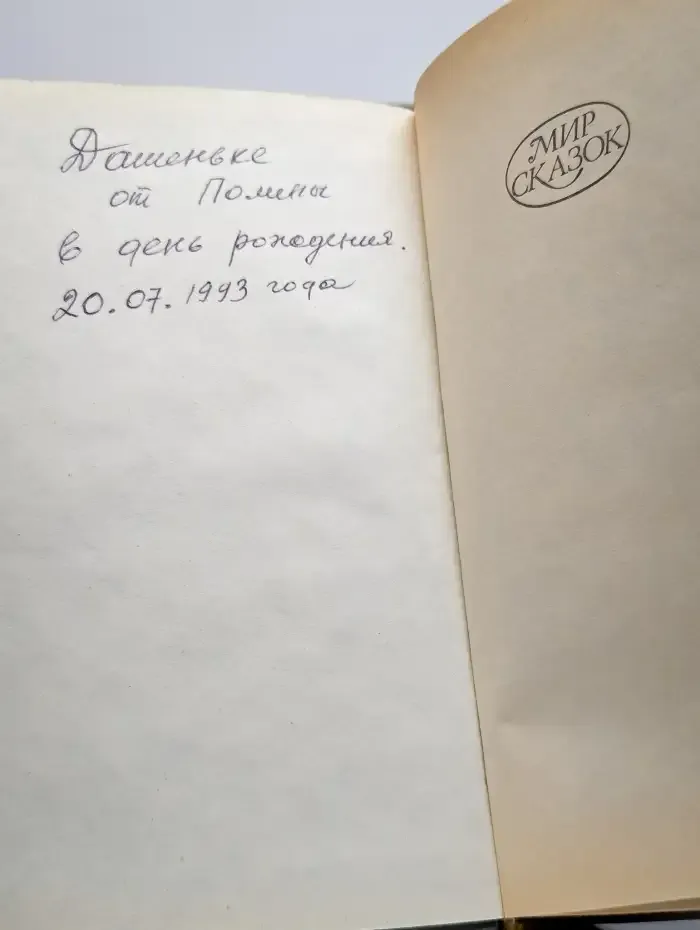 Дашеньке
от Полины
в день рождения.
20.07.1993 года
МИР
СКАЗОК